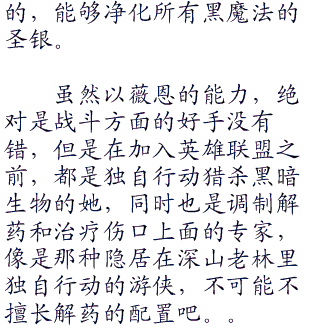 的，能够净化所有黑魔法的
圣银。
虽然以薇恩的能力，绝
对是战斗方面的好手没有
错，但是在加入英雄联盟之
前，都是独自行动猎杀黑暗
生物的她，同时也是调制解
药和治疗伤口上面的专家，
像是那种隐居在深山老林里
独自行动的游侠，不可能不
擅长解药的配置吧。。